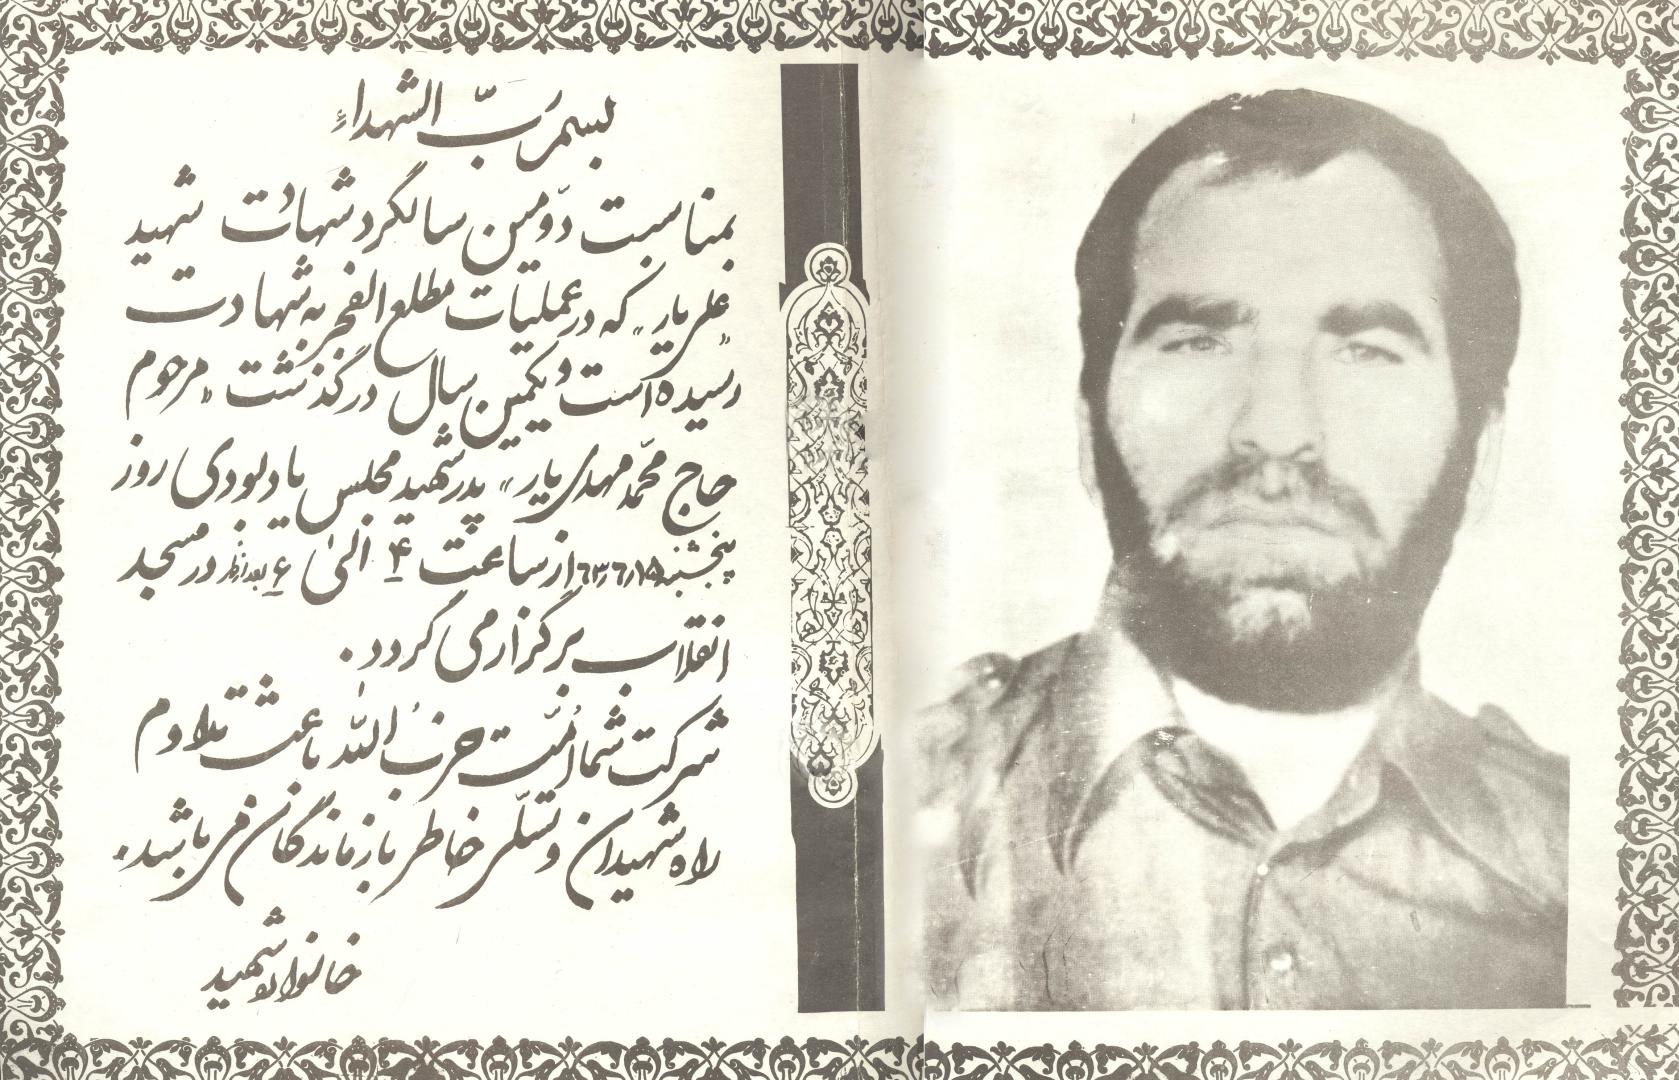 بسم ربّ الشهداءِ
بمناسبت دوّمین سالگرد شهادت شهید
"علی یار" که در عملیات مطلع الفجر به شهادت
رسیده است و یکمین سال درگذشت "مرحوم
حاج محمّدمهدی یار" پدر شهید مجلس یادبودی روز
پنجشنبه ۶۳٫۶٫۱۵ از ساعت ۴ الیٰ ۶ بعدازظهر در مسجد
انقلاب برگزار می گردد.
شرکت شما اُمّت حزبُ اللّٰه باعث تداوم
راه شهیدان و تسلّی خاطر بازماندگان می باشد.
خانواده شهید